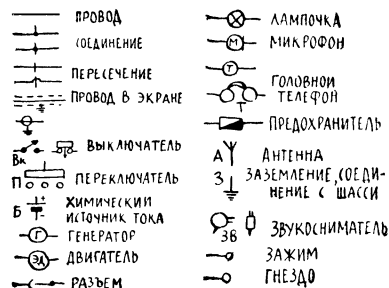 ПРОВОД
СОЕДИНЕНИЕ
ПЕРЕСЕЧЕНИЕ
ПРОВОД В ЭКРАНЕ
Вк ВЫКЛЮЧАТЕЛЬ
П ПЕРЕКЛЮЧАТЕЛЬ
Б ХИМИЧЕСКИЙ
ИСТОЧНИК ТОКА
Г ГЕНЕРАТОР
ЭД ДВИГАТЕЛЬ
РАЗЪЕМ
ЛАМПОЧКА
М МИКРОФОН
Т
ГОЛОВНОЙ
ТЕЛЕФОН
Т
ПРЕДОХРАНИТЕЛЬ
А АНТЕННА
З ЗАЗЕМЛЕНИЕ, СОЕДИ-
НЕНИЕ С ШАССИ
ЗВ ЗВУКОСНИМАТЕЛЬ
ЗАЖИМ
ГНЕЗДО